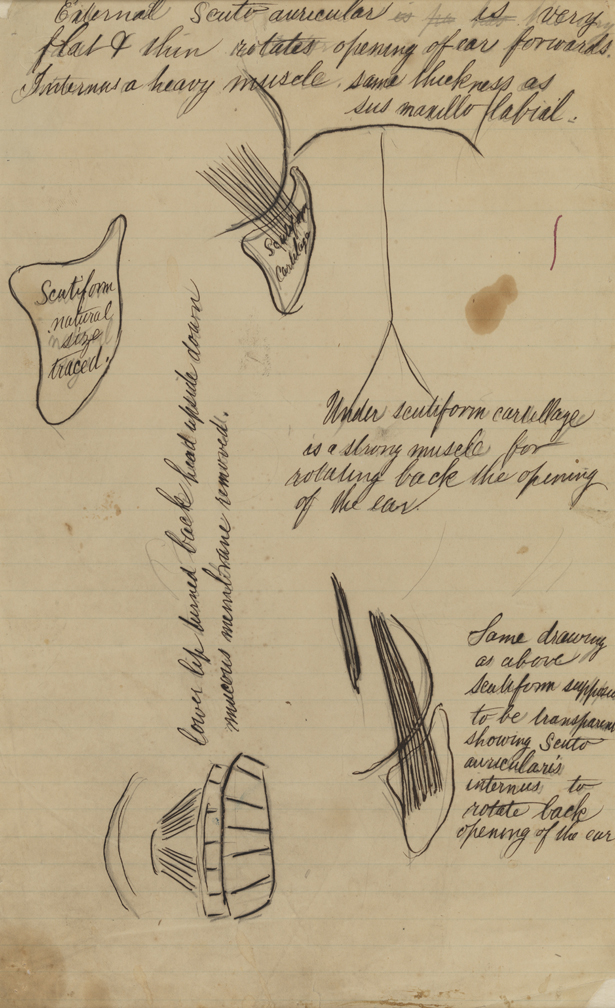 External Scuto auricular is very
flat & thin rotates opening of ear forwards.
Internus a heavy muscle. same thickness as
sus maxillo labial.
Scutiform
Cartilage
Scutiform
natural
size
traced.
Under scutiform cartillage
is a strong muscle for
rotating back the opening
of the ear.
lower lip turned back head upside down
mucous membrane removed.
Same drawing
as above
scutiform suppose
to be transparen
showing Scuto
auricularis
internus to
rotate back
opening of the ear